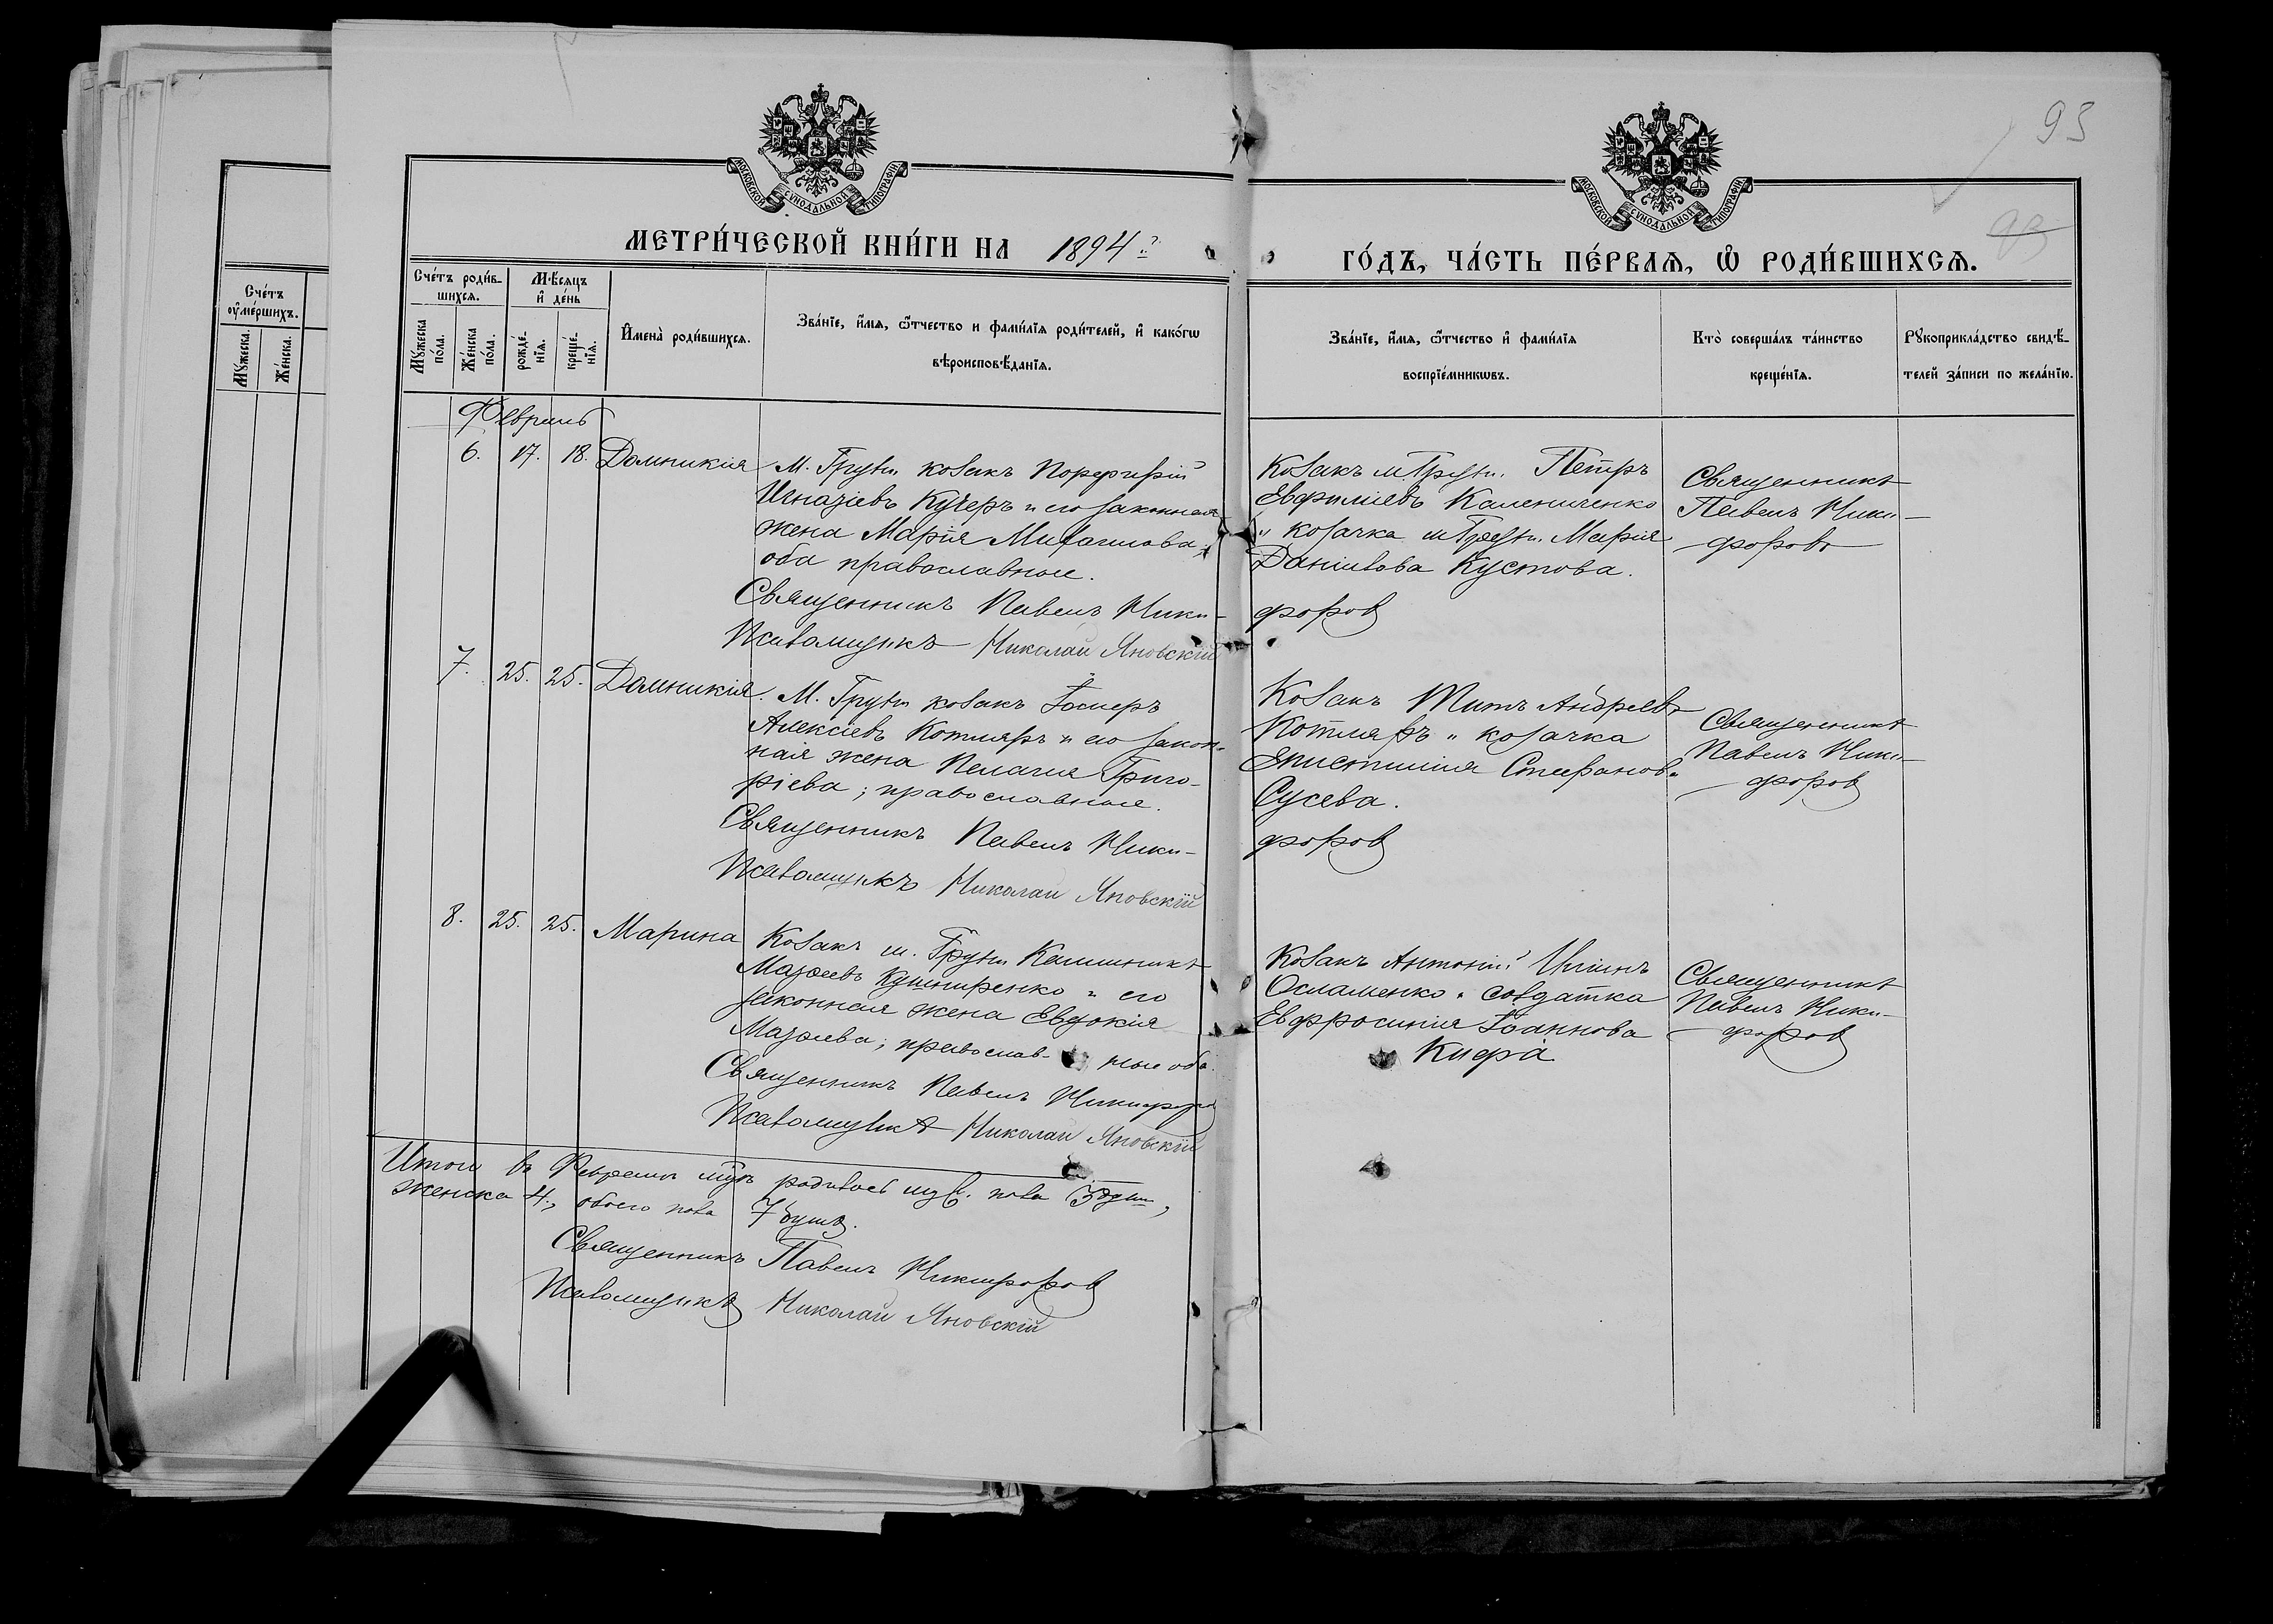 93
93
МОСКОВСКОЙ СѴНОДАЛЬНОЙ ТИПОГРАФІИ
МОСКОВСКОЙ СѴНОДАЛЬНОЙ ТИПОГРАФІИ
МЕТРИ́ЧЕСКОЙ КНИ́ГИ НА 1894 г.
ГО́ДЪ, ЧА́СТЬ ПЕ́РВАѦ, Ѽ РОДИ́ВШИХСѦ.
Сче́тъ ᲂу҆ме́ршихъ.
Мꙋжеска.
Же́нска.
Сче́тъ роди́в-
шихсѧ.
Мꙋжеска по́ла.
Же́нска по́ла.
Мѣ́сѧцъ и҆ де́нь
рожде́-
нїѧ.
креще́-
нїѧ.
И҆мена̀ роди́вшихсѧ.
Зва́нїе, и҆́мѧ, ѻ҆́тчество и фами́лїѧ роди́телей, и҆ како́гѡ
вѣроисповѣ́данїѧ.
Зва́нїе, и҆́мѧ, ѻ҆́тчество и҆ фами́лїѧ
воспрїе́мникѡвъ.
Кто̀ соверша́лъ та́инство
креще́нїѧ.
Рꙋкоприкла́дство свидѣ́-
телей за́писи по жела́нїю.
Февраль
6. 17. 18. Домникія
М. Груни козакъ Порфирій
Игнатіевъ Кучеръ и его законная
жена Марія Михаилова;
оба православные.
Священникъ Павелъ Ники-
форов
Псаломщикъ Николай Яновскій
Козакъ м. Груни. Петръ
Калениченко
и козачка м. Груни. Марія
Даніилова Кустова.
Священникъ
Павелъ Ники-
форовъ
7. 25. 25. Домникія.
М. Груни козакъ
Алексіевъ Котляръ и его закон-
ная жена Пелагия Григо-
ріева; православные.
Священникъ Павелъ Ники-
форов
Псаломщикъ Николай Яновскій
Козакъ Титъ Андреевъ
Котляръ и козачка
Епистимія Стефанова
Сусева.
Священникъ
Павелъ Ники-
форов
8. 25. 25. Марина
Козакъ м. Груни Каллиникъ
Мазаевъ Кушниренко и его
законная жена Евдокія
Мазаева; православ- ные оба.
Священникъ Павелъ Никифоров
Псаломщикъ Николай Яновскій
Козакъ Антоній Ильинъ
Осламенко и солдатка
Евфросинія Іоаннова
Кифа
Священникъ
Павелъ Ники-
форов
Итого въ Феврале м-цѣ родилось муж. пола 3 душ,
женска 4, обоего пола 7 душъ.
Священникъ Павелъ Никифоров
Псаломщикъ Николай Яновскій